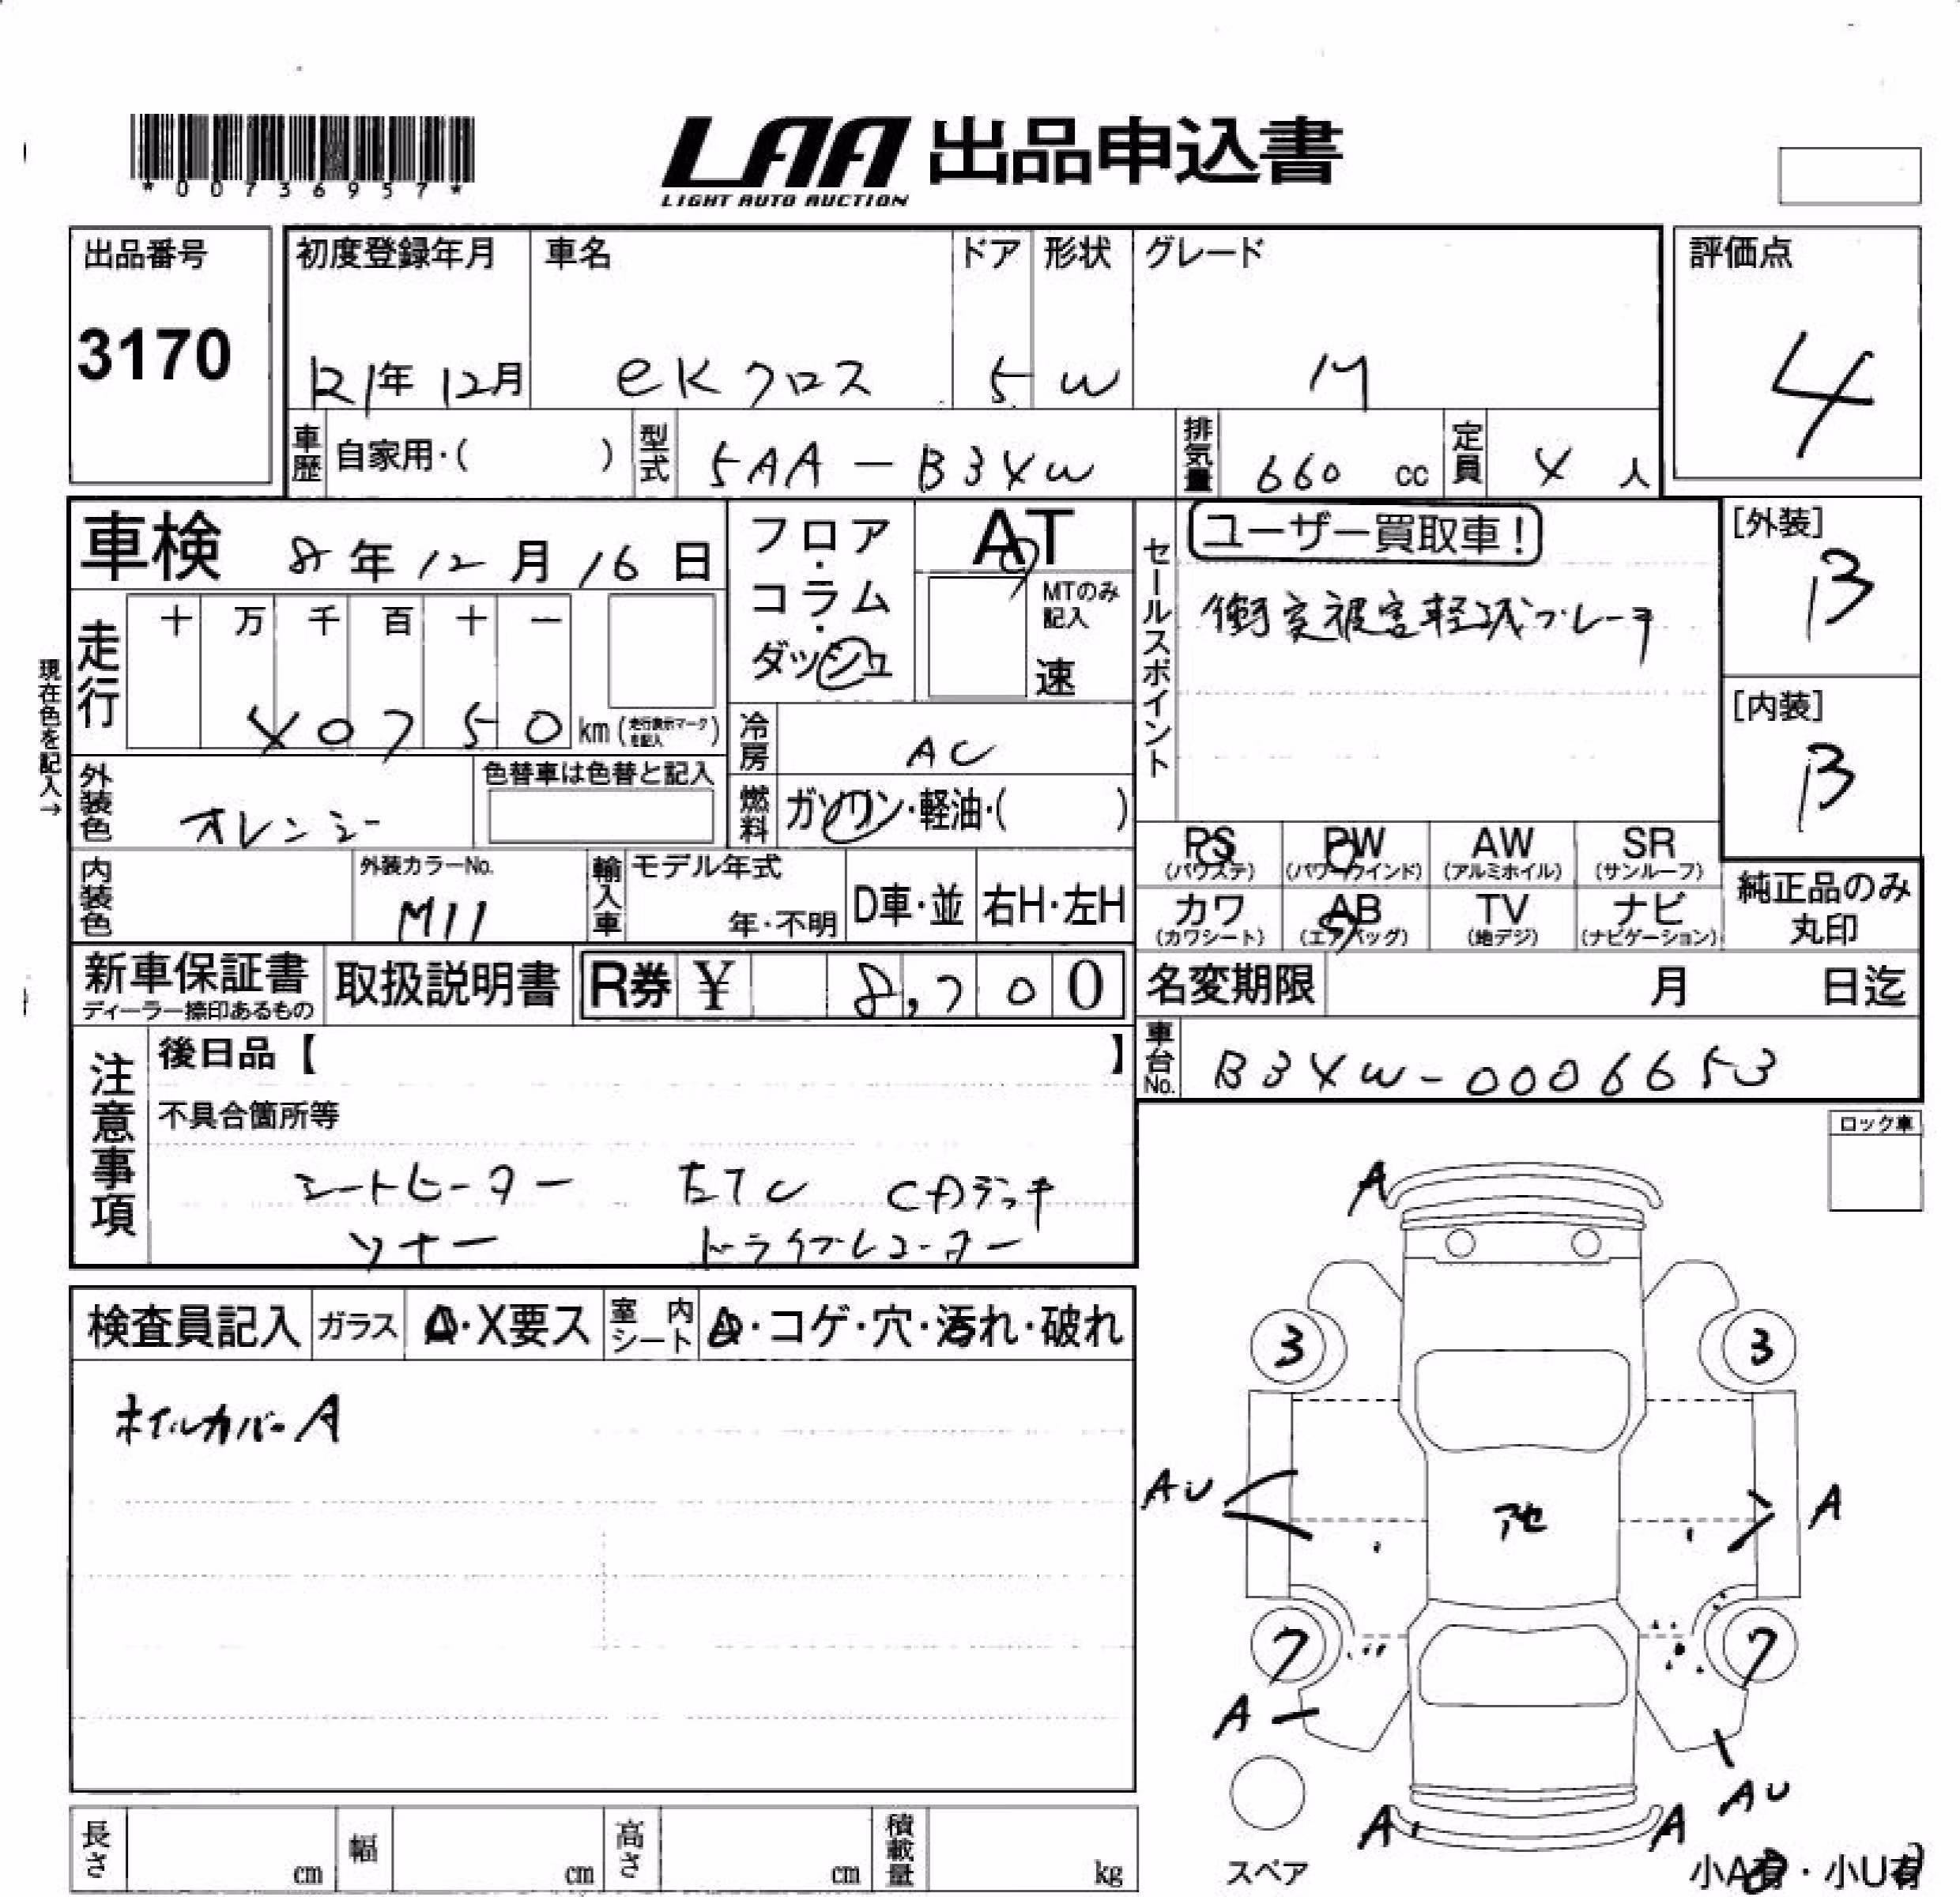 *00736957*
LAA 出品申込書
LIGHT AUTO AUCTION
出品番号
3170
初度登録年月
21年 12月
車名
eKクロス
ドア
5
形状
W
グレード
M
評価点
4
車歴
自家用・( )
型式
5AA-B34W
排気量
660 cc
定員
4 人
車検 8年12月16日
走行
十 万 千 百 十 一
40750 km (走行表示マークを記入)
現在色を記入→
フロア・コラム・ダッシュ
AT
MTのみ記入
速
冷房
AC
燃料
ガソリン・軽油・( )
セールスポイント
ユーザー買取車!
衝突被害軽減ブレーキ
[外装]
B
[内装]
B
外装色
オレンジ
色替車は色替と記入
内装色
外装カラーNo.
M11
輸入車
モデル年式
年・不明
D車・並
右H・左H
PS
(パワステ)
PW
(パワーウインド)
AW
(アルミホイル)
SR
(サンルーフ)
カワ
(カワシート)
AB
(エアバッグ)
TV
(地デジ)
ナビ
(ナビゲーション)
純正品のみ
丸印
新車保証書
ディーラー捺印あるもの
取扱説明書
R券 ¥ 8,700
名変期限 月 日迄
車台No.
B34W-0006653
注意事項
後日品【 】
不具合箇所等
シートヒーター ETC CDデッキ
ソナー ドライブレコーダー
ロック車
検査員記入
ガラス
A・X要ス
室内シート
A・コゲ・穴・汚れ・破れ
ホイルカバーA
A
3
3
AU
A
7
7
A
AU
A
A
スペア
小A有・小U有
長さ cm
幅 cm
高さ cm
積載量 kg